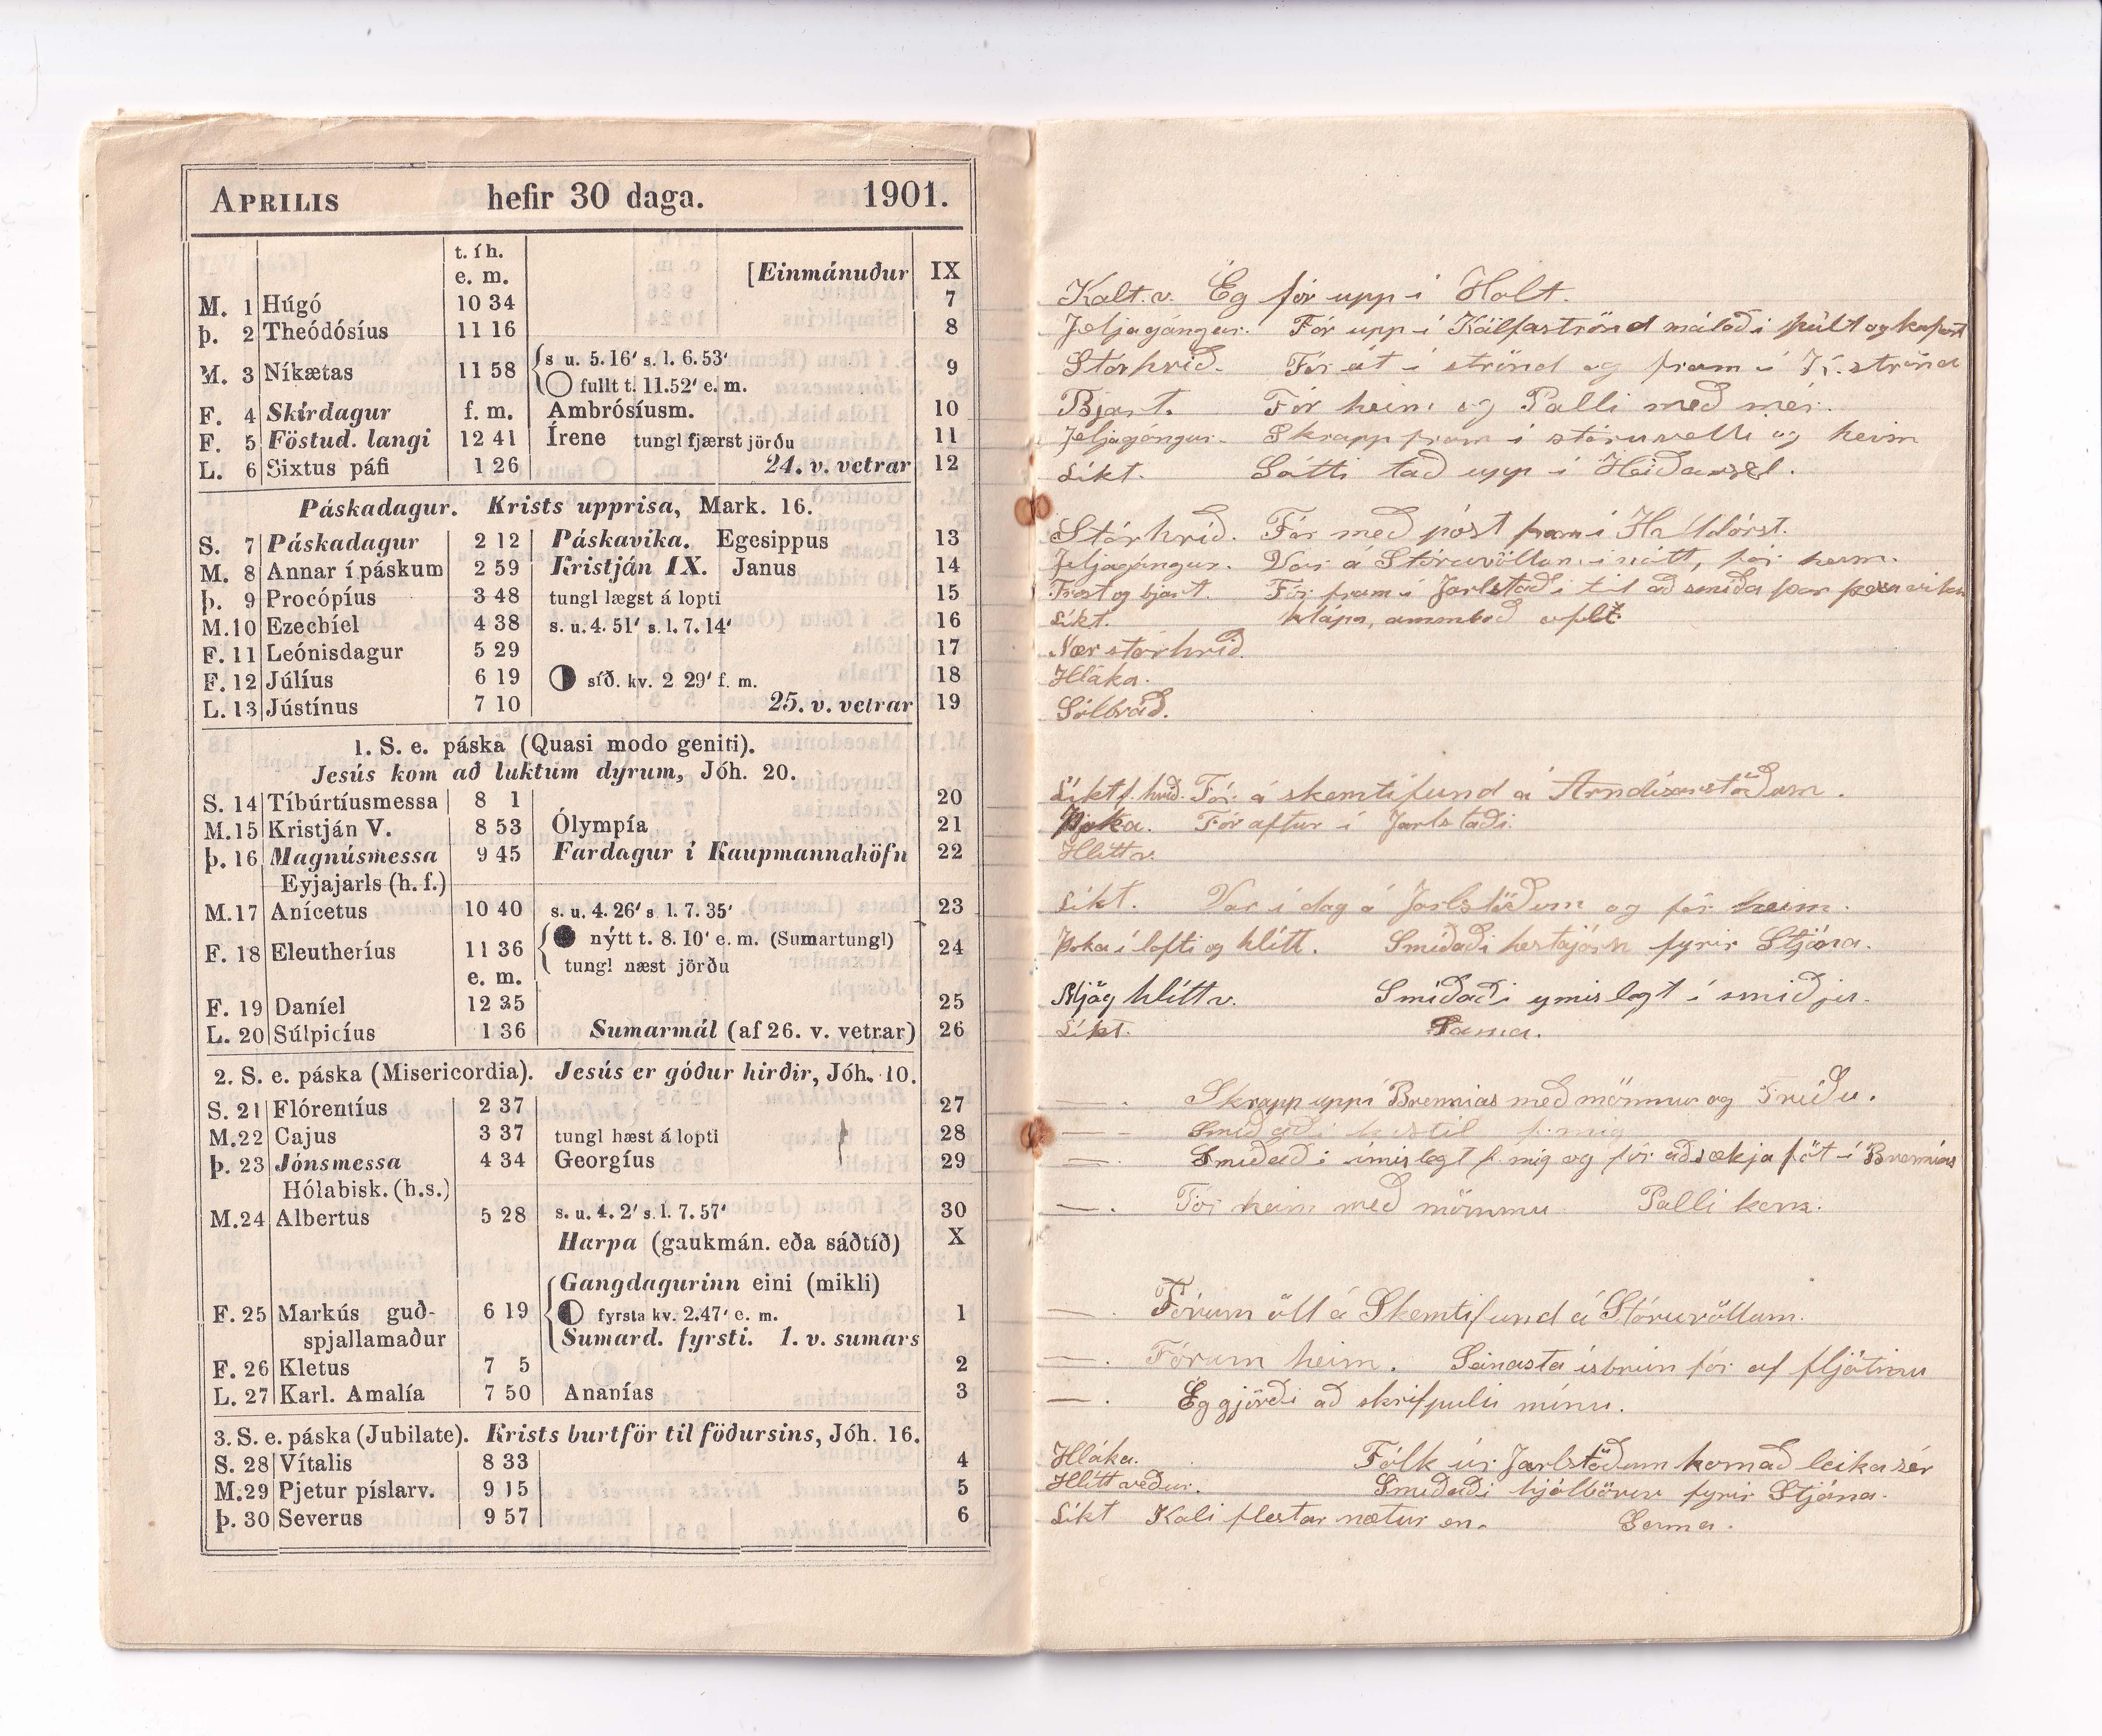 APRILIS hefir 30 daga. 1901.
t. í h.
e. m. [Einmánuður IX
M. 1 Húgó 10 34 7
Þ. 2 Theódósíus 11 16 8
M. 3 Níkætas 11 58 s u. 5. 16′ s. l. 6. 53′ 9
fullt t. 11.52′ e. m.
F. 4 Skírdagur f. m. Ambrósíusm. 10
F. 5 Föstud. langi 12 41 Írene tungl fjærst jörðu 11
L. 6 Sixtus páfi 1 26 24. v. vetrar 12
Páskadagur. Krists upprisa, Mark. 16.
S. 7 Páskadagur 2 12 Páskavika. Egesippus 13
M. 8 Annar í páskum 2 59 Kristján IX. Janus 14
þ. 9 Procópíus 3 48 tungl lægst á lopti 15
M. 10 Ezechíel 4 38 s. u. 4. 51′ s. l. 7. 14′ 16
F. 11 Leónisdagur 5 29 17
F. 12 Júlíus 6 19 síð. kv. 2 29′ f. m. 18
L. 13 Jústínus 7 10 25. v. vetrar 19
1. S. e. páska (Quasi modo geniti).
Jesús kom að luktum dyrum, Jóh. 20.
S. 14 Tíbúrtíusmessa 8 1 20
M. 15 Kristján V. 8 53 Ólympía 21
þ. 16 Magnúsmessa 9 45 Fardagur í Kaupmannahöfn 22
Eyjajarls (h. f.)
M. 17 Anícetus 10 40 s. u. 4. 26′ s l. 7. 35′ 23
F. 18 Eleutheríus 11 36 nýtt t. 8. 10′ e. m. (Sumartungl) 24
e. m. tungl næst jörðu
F. 19 Daníel 12 35 25
L. 20 Súlpicíus 1 36 Sumarmál (af 26. v. vetrar) 26
2. S. e. páska (Misericordia). Jesús er góður hirðir, Jóh. 10.
S. 21 Flórentíus 2 37 27
M. 22 Cajus 3 37 tungl hæst á lopti 28
þ. 23 Jónsmessa 4 34 Georgíus 29
Hólabisk. (h.s.)
M. 24 Albertus 5 28 s. u. 4. 2′ s. l. 7. 57′ 30
Harpa (gaukmán. eða sáðtíð) X
Gangdagurinn eini (mikli)
F. 25 Markús guð- 6 19 fyrsta kv. 2.47′ e. m. 1
spjallamaður Sumard. fyrsti. 1. v. sumars
F. 26 Kletus 7 5 2
L. 27 Karl. Amalía 7 50 Ananías 3
3. S. e. páska (Jubilate). Krists burtför til föðursins, Jóh. 16.
S. 28 Vítalis 8 33 4
M. 29 Pjetur píslarv. 9 15 5
þ. 30 Severus 9 57 6
Kalt. v. Ég fór upp í Holt.
Jeljagángur. Fór upp í Kálfaströnd málaði púlt og
Stórhríð. Fór út í strönd og fram í K. strönd
Bjart. Fór heim og Palli með mér.
Jeljagángur. Skrapp fram í stóruvelli og heim
Líkt. Sótti tað upp í Heiðarsel.
Stórhríð. Fór með póst fram í Halldórst.
Jeljagángur. Var á Stóruvöllum í nótt, fór heim.
Frost og bjart. Fór fram í Jarlstaði til að smíða þar
Líkt. amboð
Nær stórhríð.
Hláka.
Sólbráð.
Líkt f. hríð. Fór á skemtifund á Arndísarstöðum.
Þoka. Fór aftur í Jarlstaði.
Hlítt v.
Líkt. Var í dag á Jarlstöðum og fór heim.
Þoka í lofti og hlítt. Smíðaði hestajárn fyrir Stjána.
Mjög hlítt v. Smíðaði ymislegt í smiðju.
Líkt. Sama.
— . Skrapp uppí Brennias með mömmu og Fríðu.
— – Smíðaði f. mig
— . Smíðaði ímislegt f. mig og fór að sækja föt í Brennias
— . Fór heim með mömmu Palli kom.
— . Fórum öll á Skemtifund á Stóruvöllum.
— . Fórum heim. Sánasta ísbrúin fór af fljótinu
— . Ég gjörði að skrifpulti mínu.
Hláka. Fólk úr Jarlstöðum kom að leika sér
Hlítt veður. Smíðaði hjólbörur fyrir Stjána.
Líkt Kali flestar nætur en. Sama.